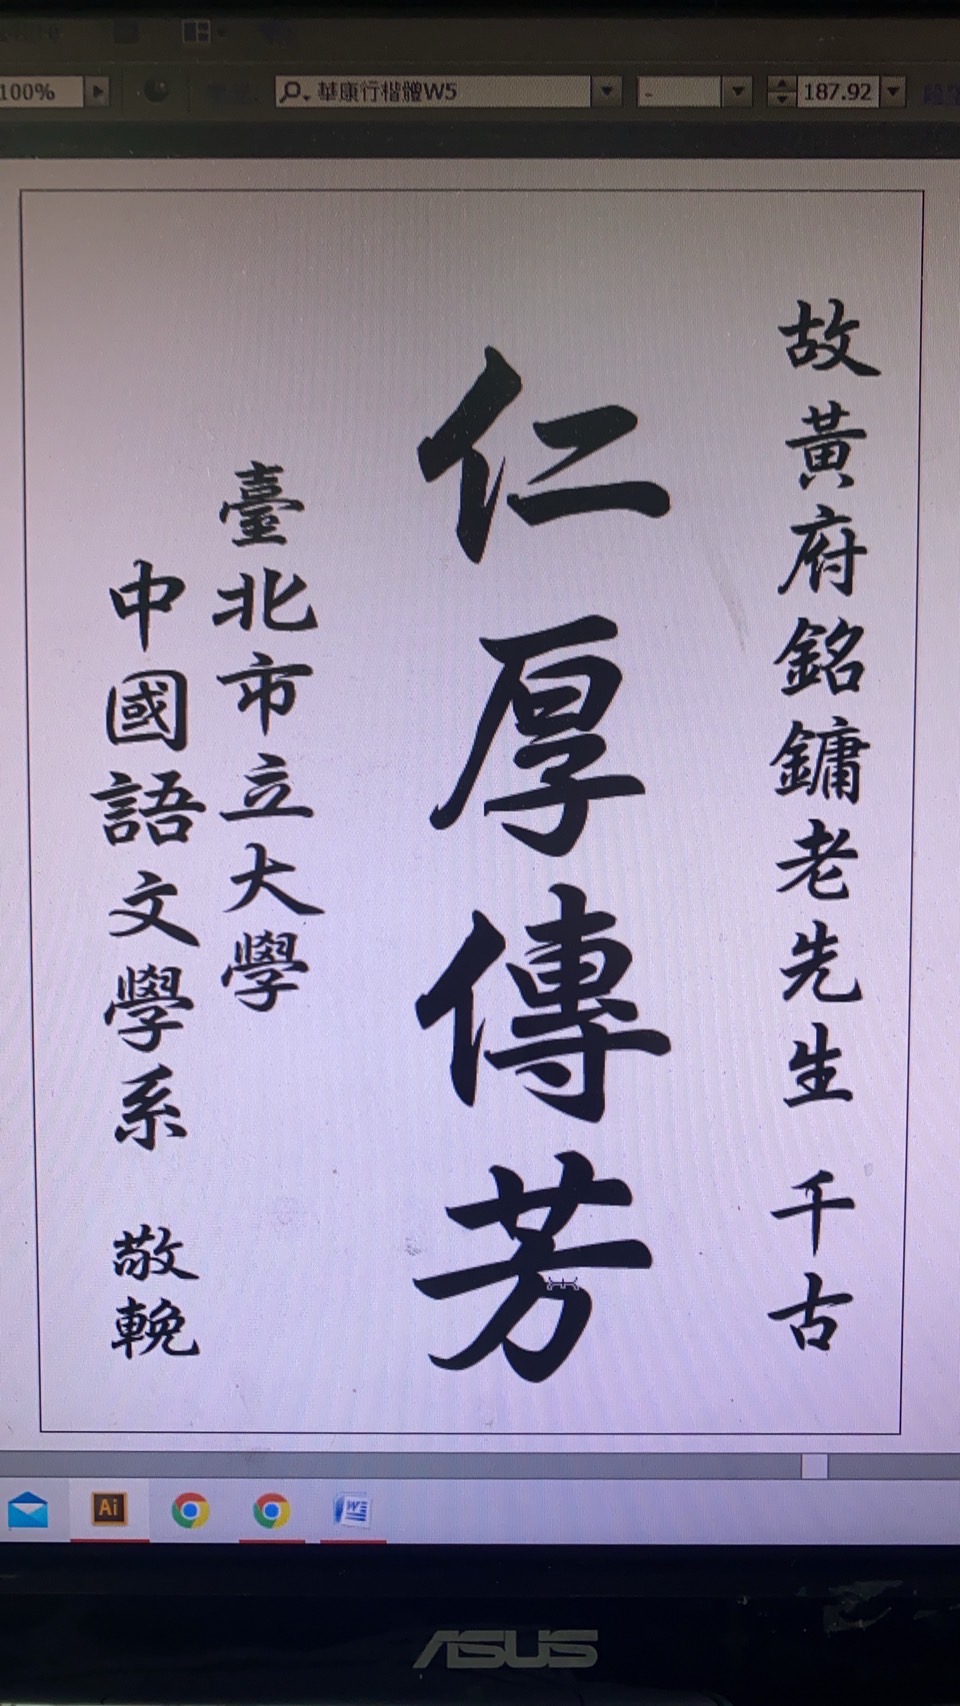 100%
華康行楷體W5
-
187.92
故黃府銘鏞老先生 千古
仁厚傳芳
臺北市立大學
中國語文學系 敬輓
Ai
W
ASUS